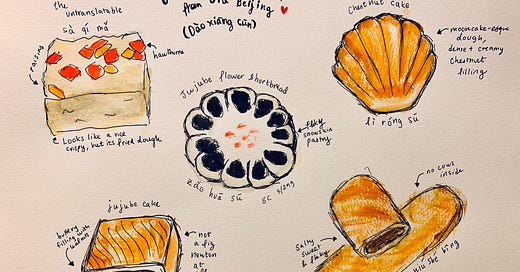 the
untranslatable
sà qí mǎ
from Old Beijing
(Dào xiāng cūn)
raisins
hawthorne
Looks like a rice
crispy, but its fried dough
Jujube flower shortbread
flaky
snowskin
pastry
zǎo huā sū
Chestnut cake
mooncake-esque
dough,
dense + creamy
chestnut
filling
lì róng sū
jujube cake
buttery
filling with
walnuts
not
a fig
newton
at
no cows
inside
salty
sweet
& flaky
niú shé bǐng